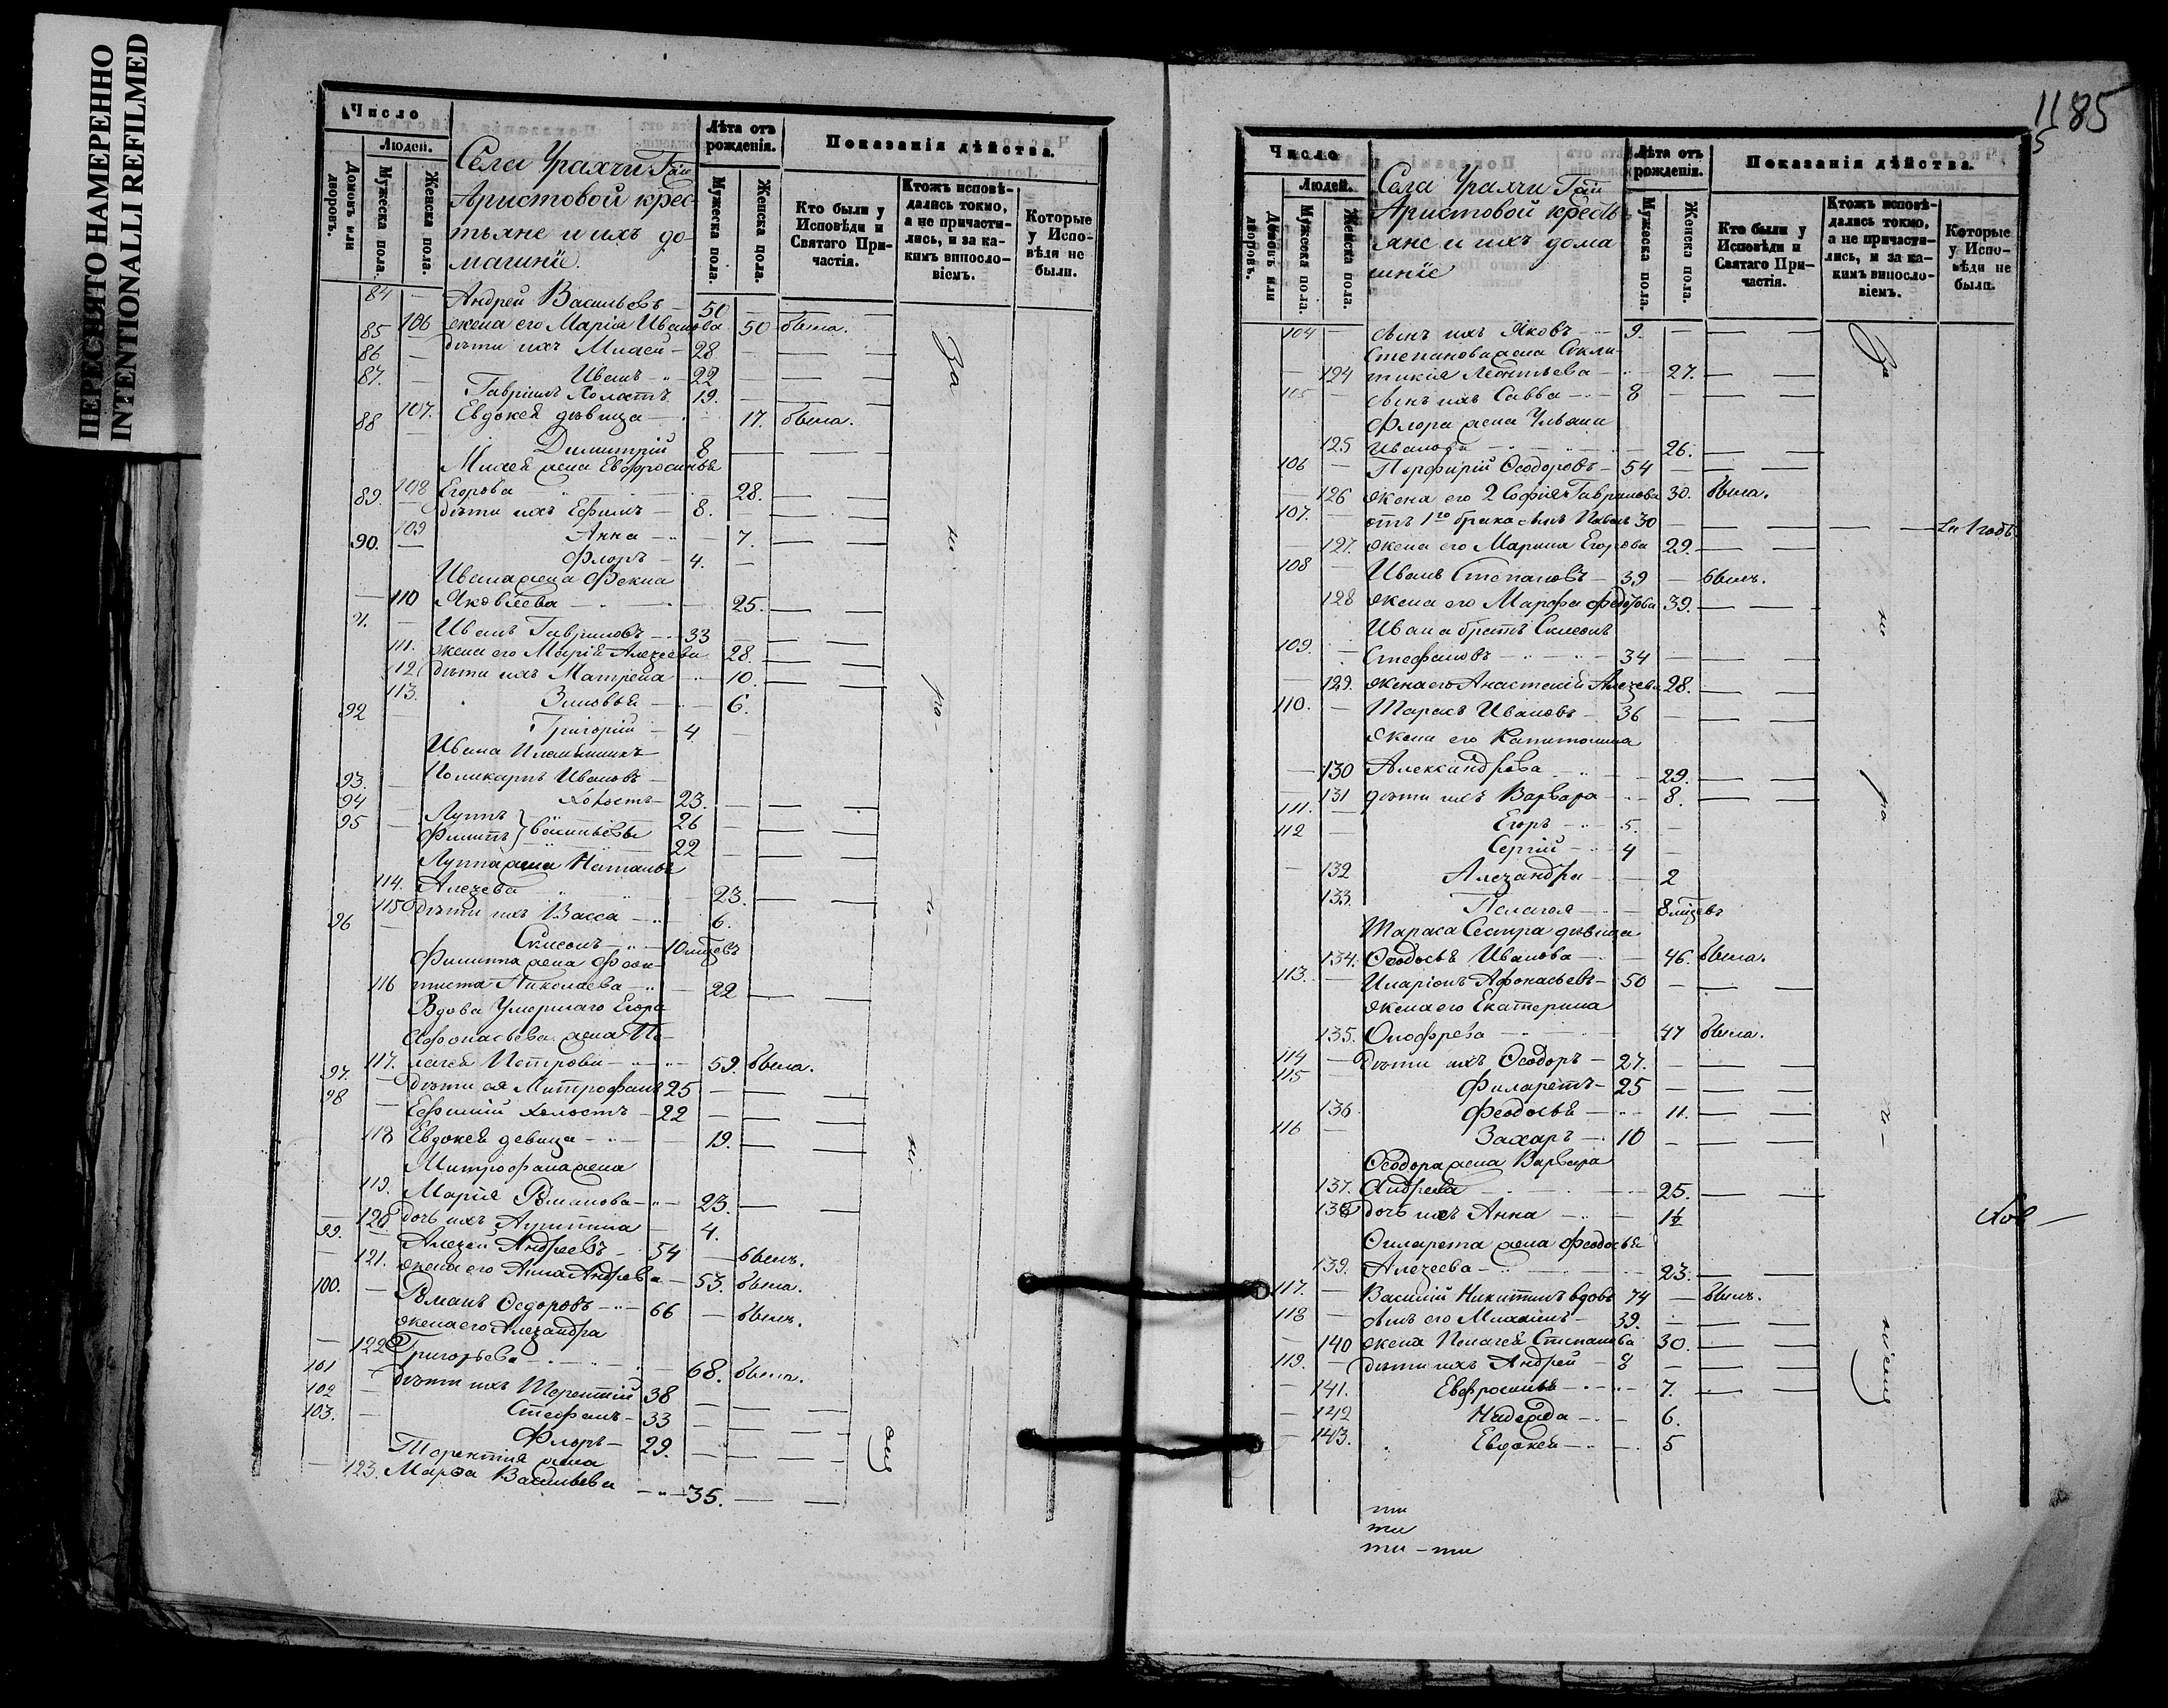 ПЕРЕСНЯТО НАМЕРЕННО
INTENTIONALLI REFILMED
Число
Людей.
Домовъ или дворовъ.
Мужеска пола.
Женска пола.
Села Урахчи Гжи
Аристовой крес-
тьяне и ихъ до-
машніе.
Лѣта отъ рожденія.
Мужеска пола.
Женска пола.
Показанія дѣйства.
Кто были у Исповѣди и Святаго Причастія.
Ктожъ исповѣдались токмо, а не причастились, и за какимъ винословіемъ.
Которые у Исповѣди не были.
84 — Андрей Васильевъ — 50 —
106 жена его Марія Иванова 50 была.
85 — дѣти ихъ Михей — 28 —
86 — Иванъ — 22 —
87. — Гавріилъ Холостъ 19. —
107. Евдокея дѣвица — 17. была.
88 — Димитрій 8
Михея жена Евфросинья
108 Егорова — 28.
89. — дѣти ихъ Ефимъ — 8. —
109 Анна — 7.
90. — Флоръ — 4. —
Ивана жена Фекла
— 110 Яковлева — 25.
91. — Иванъ Гавриловъ — 33 —
111. жена его Марія Алексеева 28.
112 дѣти ихъ Матрена 10.
113. Зиновья — 6.
92 — Григорій — 4 —
Ивана Племянникъ
Поликарпъ Ивановъ —
93. — Холостъ — 23. —
94 — Луппъ } Васильевы 26 —
95 — Филипъ } 22 —
Луппа жена Наталья
114. Алексеева 23.
115 дѣти ихъ Васса — 6.
96 — Симеонъ — 10 мѣсяцевъ
Филиппа жена Феок-
116 тиста Николаева — 22
Вдова Умершаго Егора
Афонасьева жена Пе-
117. лагея Петрова — 59. была.
97. — дѣти ея Митрофанъ 25 —
98 — Ефимій холостъ — 22 —
118 Евдокея девица — 19.
Митрофана жена
119. Марія Романова — 23.
— 120 дочь ихъ Агрипина — 4.
99. — Алексей Андреевъ — 54 — былъ.
— 121. жена его Анна Андреева — 53. была.
100. — Романъ Ѳедоровъ — 66 — былъ.
жена его Александра
— 122 Григорьева — 68. была.
101 — дѣти ихъ Терентій 38 —
102 — Стефанъ — 33 —
103. — Флоръ — 29. —
Терентія жена
— 123. Марфа Васильева — 35.
За не ра
1185
5
Число
Людей.
Домовъ или дворовъ.
Мужеска пола.
Женска пола.
Села Урахчи Гжи
Аристовой кресть
яне и ихъ дома
шніе
Лѣта отъ рожденія.
Мужеска пола.
Женска пола.
Показанія дѣйства.
Кто были у Исповѣди и Святаго Причастія.
Ктожъ исповѣдались токмо, а не причастились, и за какимъ винословіемъ.
Которые у Исповѣди не были.
104 — сынъ ихъ Яковъ — 9. —
Степанова жена Сикли-
— 124 тикія Леонтьева — 27.
105 — сынъ ихъ Савва — 8 —
Флора жена Ульяна
125 Иванова — 26.
106 — Порфирій Ѳеодоровъ — 54 —
— 126 жена его 2 Софія Гаврилова 30. была.
107. — отъ 1го брака сынъ Павелъ 30 —
— 127. жена его Марина Егорова 29.
108 — Иванъ Степановъ — 39 — былъ.
128 жена его Марфа Федотова 39.
Ивана братъ Симеонъ
109. — Стефановъ — 34 —
— 129. жена его Анастасія Алексеева 28.
110. — Тарасъ Ивановъ — 36 —
жена его Капитолина
— 130 Александрова — 29.
— 131 дѣти ихъ Варвара — 8.
111. — Егоръ — 5. —
112 — Сергій — 4 —
— 132 Александра — 2
133. Пелагея — 8 мѣсяцевъ
Тараса Сестра дѣвица
134. Ѳеодосья Иванова — 46. была.
113. — Иларіонъ Афонасьевъ — 50 —
жена его Екатерина
135. Онофрева — 47 была.
114 — дѣти ихъ Ѳеодоръ — 27. —
115 Филаретъ — 25 —
136 Феодосья — 11.
116 — Захаръ — 10 —
Ѳеодора жена Варвара
137. Андреева — 25.
138 дочь ихъ Анна — 1½
Филарета жена Феодосья
139. Алексеева — 23.
117. — Василій Никитинъ вдовъ 74 — былъ.
118 — сынъ его Михаилъ — 39. —
— 140 жена Пелагея Степанова 30.
119. — дѣти ихъ Андрей — 8 —
— 141. Евфросинья — 7.
— 142 Надежда — 6.
— 143. Евдокея — 5
За не ра
ти
ти
ти - ти